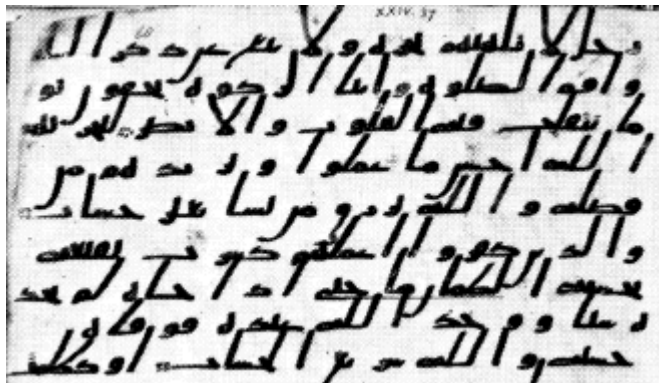 XXIV. 37
رجل لا تلهيهم تجره ولا بيع عن ذكر الله
واقام الصلوه وايتا الزكوه يخافون يو
ما تتقلب فيه القلوب والابصر ليجزيهم
الله احسن ما عملوا ويزيدهم من
فضله والله يرزق من يشا بغير حساب
والذين كفروا اعملهم كسراب بقيعه
يحسبه الظمان ما حتى اذا جاه لم يجد
ه شيا ووجد الله عنده فوفيه
حسابه والله سريع الحساب او كظلمت